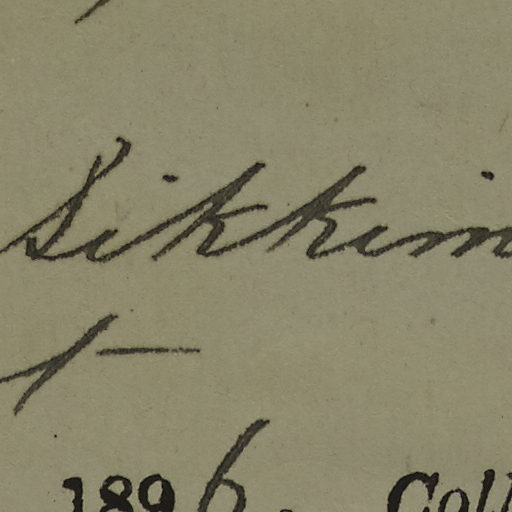 Sikkim
1896. Coll